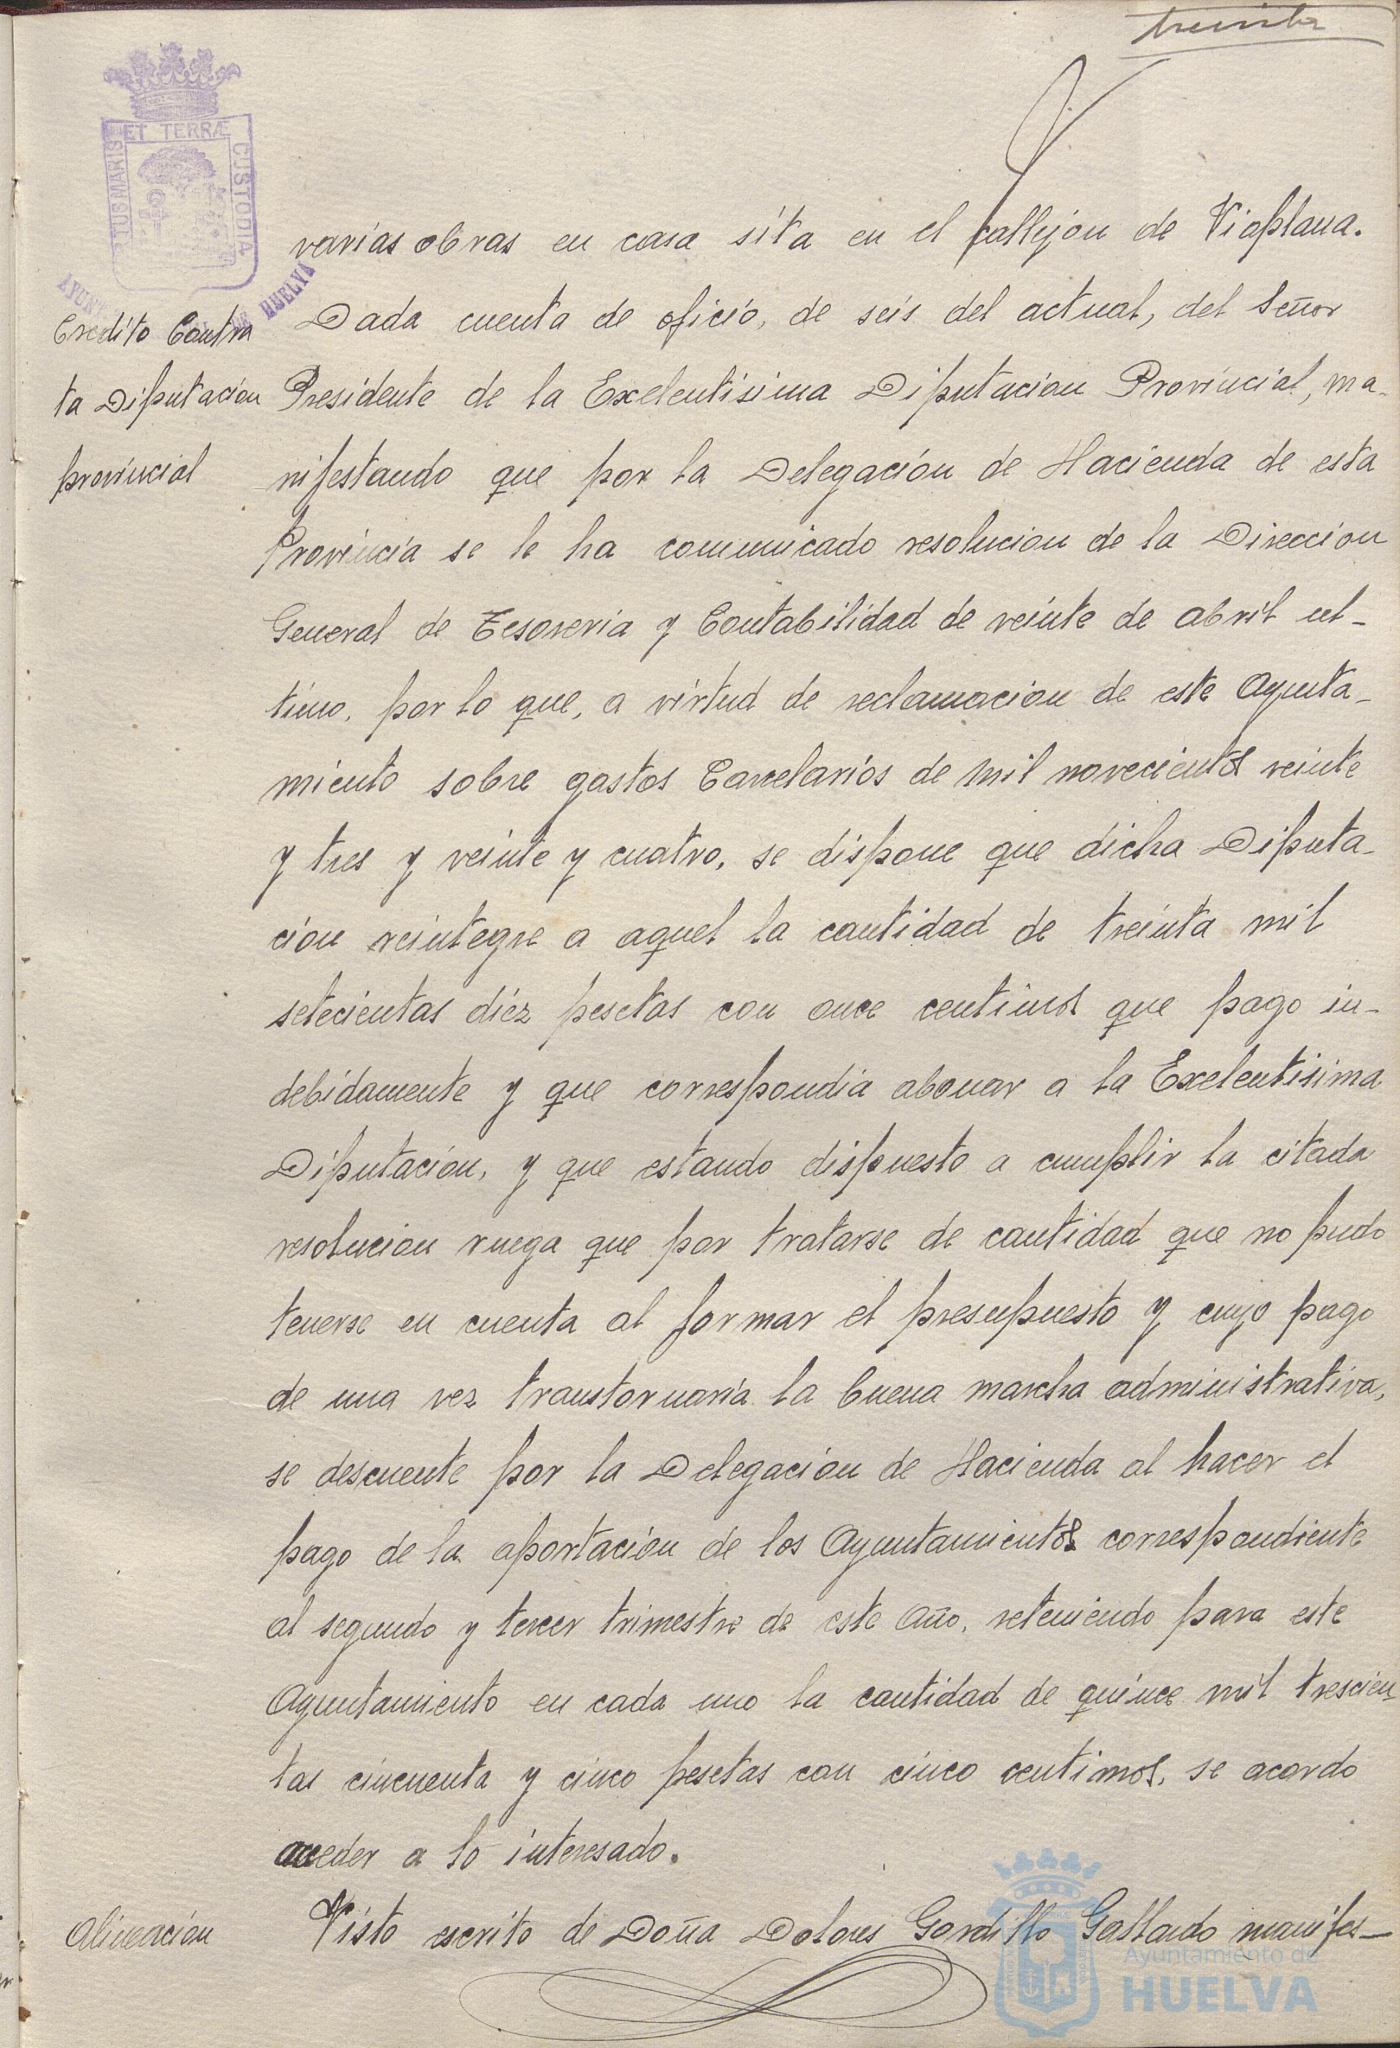 treinta
ET TERRÆ
CUSTODIA
TUS MARIS
AYUNT
DE HUELVA
varias obras en casa sita en el callejon de Vioplana.
Credito Contra
ta Diputacion
provincial
Dada cuenta de oficio, de seis del actual, del Señor
Presidente de la Exelentisima Diputacion Provincial, ma-
nifestando que por la Delegación de Hacienda de esta
Provincia se le ha comunicado resolucion de la Direccion
General de Tesoreria y Contabilidad de veinte de abril ul-
timo, por lo que, a virtud de reclamacion de este Ayunta-
miento sobre gastos Carcelarios de mil novecientos veinte
y tres y veinte y cuatro, se dispone que dicha Diputa-
cion reintegre a aquel la cantidad de treinta mil
setecientas diez pesetas con once centimos que pago in-
debidamente y que correspondia abonar a la Exelentisima
Diputación, y que estando dispuesto a cumplir la citada
resolucion ruega que por tratarse de cantidad que no pudo
tenerse en cuenta al formar el presupuesto y cuyo pago
de una vez transtornaria la buena marcha administrativa,
se descuente por la Delegación de Hacienda al hacer el
pago de la aportacion de los Ayuntamientos correspondiente
al segundo y tercer trimestre de este año, reteniendo para este
Ayuntamiento en cada uno la cantidad de quince mil trescien
tas cincuenta y cinco pesetas con cinco centimos, se acordo
acceder a lo interesado.
Alineación
Visto escrito de Doña Dolores Gordillo Gallardo manifes-
Ayuntamiento de
HUELVA